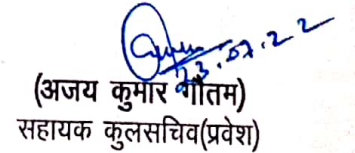 23.07.22
(अजय कुमार गौतम)
सहायक कुलसचिव(प्रवेश)